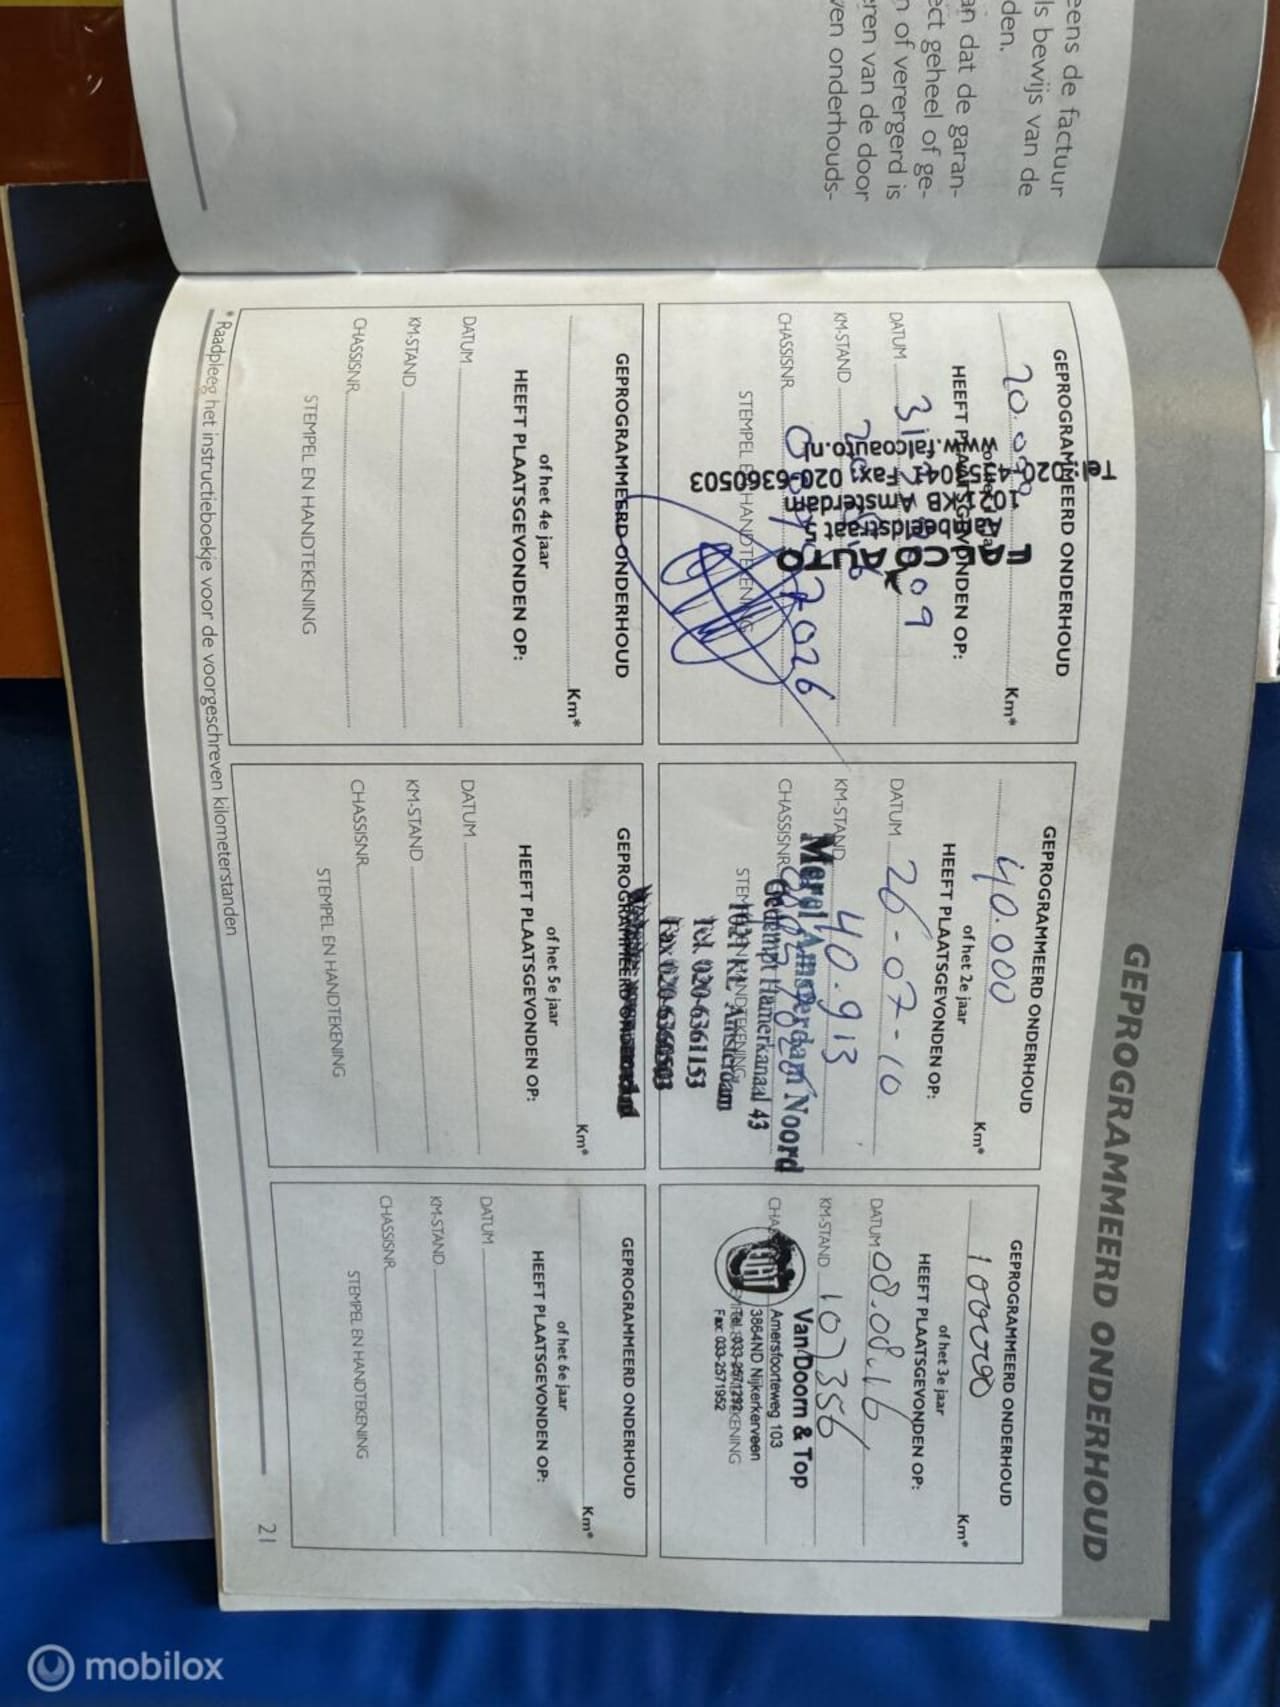 eens de factuur
ls bewijs van de
den.
an dat de garan-
ect geheel of ge-
n of verergerd is
eren van de door
ven onderhouds-
GEPROGRAMMEERD ONDERHOUD
GEPROGRAMMEERD ONDERHOUD
20.000 Km*
HEEFT PLAATSGEVONDEN OP:
DATUM
KM-STAND
CHASSISNR.
STEMPEL EN HANDTEKENING
FALCO AUTO
Aambeeldstraat
1021 KB Amsterdam
Tel: 020-4155041 Fax: 020-6360503
www.falcoauto.nl
GEPROGRAMMEERD ONDERHOUD
40.000 Km*
of het 2e jaar
HEEFT PLAATSGEVONDEN OP:
DATUM 26-07-10
KM-STAND 40.913
CHASSISNR.
STEMPEL EN HANDTEKENING
Merel Amsterdam Noord
Gedempt Hamerkanaal 43
1021 KL Amsterdam
Tel. 020-6361153
Fax 020-6360503
GEPROGRAMMEERD ONDERHOUD
100000 Km*
of het 3e jaar
HEEFT PLAATSGEVONDEN OP:
DATUM 08.08.16
KM-STAND 107356
FIAT
Van Doorn & Top
Amersfoorteweg 103
3864ND Nijkerkerveen
Tel. 033-2571292
Fax: 033-2571952
GEPROGRAMMEERD ONDERHOUD
Km*
of het 4e jaar
HEEFT PLAATSGEVONDEN OP:
DATUM
KM-STAND
CHASSISNR.
STEMPEL EN HANDTEKENING
GEPROGRAMMEERD ONDERHOUD
Km*
of het 5e jaar
HEEFT PLAATSGEVONDEN OP:
DATUM
KM-STAND
CHASSISNR.
STEMPEL EN HANDTEKENING
GEPROGRAMMEERD ONDERHOUD
Km*
of het 6e jaar
HEEFT PLAATSGEVONDEN OP:
DATUM
KM-STAND
CHASSISNR.
STEMPEL EN HANDTEKENING
* Raadpleeg het instructieboekje voor de voorgeschreven kilometerstanden
21
mobilox